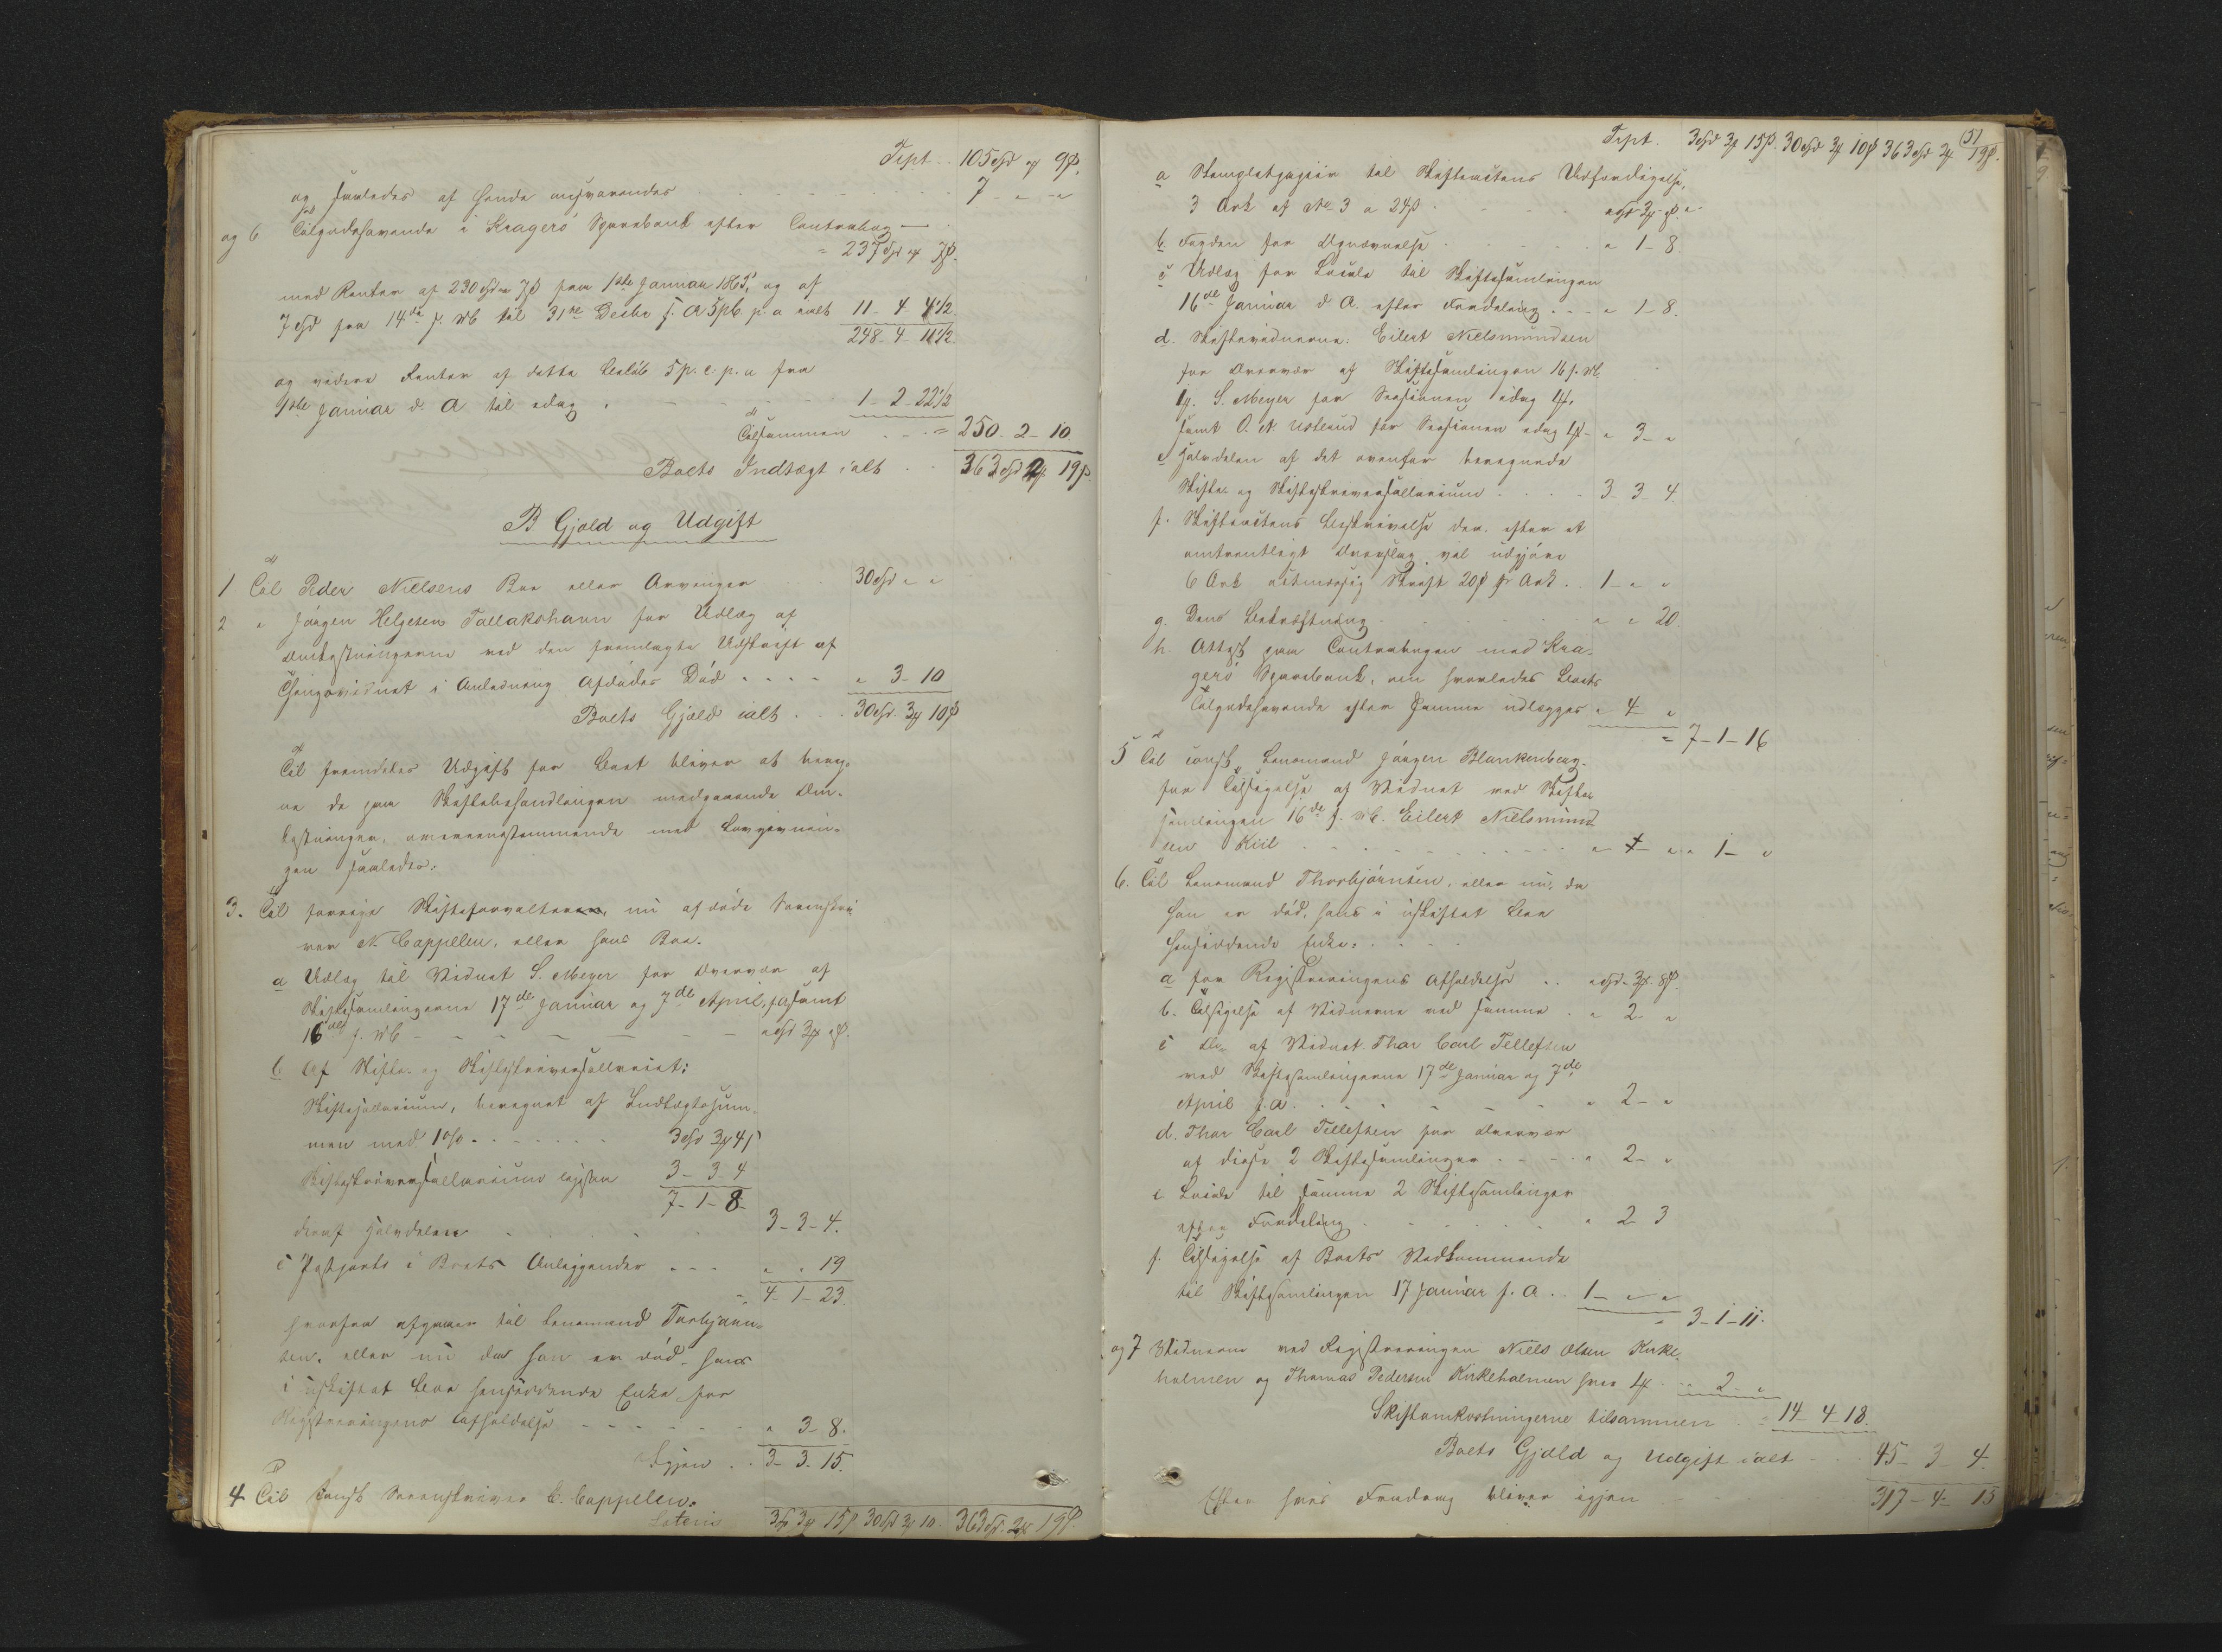 Tspt. 105 Spd " 9 ß.
og saaledes af hende ansvarendes 7 - " - "
og 6 Tilgodehavende i Kragerö Sparebank efter Contrabog —
= 237 Spd " 7ß.
med Renter af 230 Spd " 7ß fra 1ste Januar 1865, og af
7 Spd fra 14de f. Mts til 31te Decbr f. A 5 pCt. p. a ialt 11 - 4 - 4 1/2.
248 - 4 - 11 1/2.
og videre Renter af dette Beløb 5 p. c. p. a fra
1ste Januar d. A til idag 1 - 2 - 22 1/2
Tilsammen = 250 - 2 - 10.
Boets Indtægt ialt 363 Spd 2 19 ß.
B Gjæld og Udgift
1 Til Peder Nielsens Boe eller Arvinger 30 Spd " "
2 " Jörgen Helgesen Tallakshavn for Udlæg af
Omkostningerne ved den fremlagte Udskrift af
Thingsvidnet i Anledning Afdødes Död " 3 - 10
Boets Gjæld ialt 30 Spd. 3 10 ß
Til fremdeles Udgift for Boet bliver at bereg-
ne de paa Skiftebehandlingen medgaaende Om-
kostninger, overeensstemmende med Lovgivnin-
gen saaledes:
3. Til forrige Skifteforvalter, nu afdøde Sorenskri-
ver N. Cappelen, eller hans Boe.
a Udlæg til Vidnet S. Meyer for Overvær af
Skiftesamlingerne 17de Januar og 7de April, f. A samt
16de f. Mts " Spd 3 " ß.
b Af Skifte- og Skifteskriversallariet:
Skiftesallarium, beregnet af Indtægtssum-
men med 1 % 3 Spd 3 4 ß
Skifteskriversallarium ligesaa 3 - 3 - 4
7 - 1 - 8
deraf Halvdelen 3 - 3 - 4.
c Postporto i Boets Anliggender " " 19
4 - 1 - 23.
hvorfra afgaaer til Lensmand Torbjørn-
sen, eller nu da han er død, hans
i uskiftet Boe hensiddende Enke for
Registreringens Afholdelse " 3 - 8.
Igjen 3 - 3 - 15.
4 Til const. Sorenskriver C. Cappelen.
Lateris 3 Spd 3 15 ß 30 Spd 3 10. 363 Spd. 2 19 ß.
(5)
Tspt. 3 Spd 3 15 ß. 30 Spd 3 10 ß 363 Spd 2 19 ß.
a Stempletpapiir til Skifteactens Udfærdigelse,
3 Ark af No 3 a 24 ß " Spd 3 " ß.
b. Fogden for Opnævnelse " 1 - 8.
c Udlæg for Locale til Skiftesamlingen
16de Januar d A. efter Fordeling " 1 - 8.
d. Skiftevidnerne: Eilert Nielsmundsen
for Overvær af Skiftesamlingen 16 f. Mts.
1. S. Meyer for Sessionen idag 1
samt O. N. Ustrud for Sessionen idag 1 " 3 - "
e Halvdelen af det ovenfor beregnede
Skifte- og Skifteskriversallarium 3 - 3 - 4.
f. Skifteactens Beskrivelse der efter et
omtrentligt Overslag vil udgjöre
6 Ark actmæssig Skrift 20 ß pr Ark 1 - " "
g. Dens Bekræftning " " 20.
h. Attest paa Contrabogen med Kra-
gerö Sparebank, om hvorledes Boets
Tilgodehavende efter samme udlægges " 4 "
= 7 - 1 - 16
5 Til const. Lensmand Jörgen Blankenberg
for Tilsigelse af Vidnet ved Skifte-
samlingen 16de f. Mts. Eilert Nielsmund-
sen Kiil " 1 - "
6. Til Lensmand Thorbjørnsen, eller nu, da
han er död, hans i uskiftet Boe
hensiddende Enke:
a for Registreringens Afholdelse " Spd - 3 - 8 ß.
b. Tilsigelse af Vidnerne ved samme " 2 - "
c Do af Vidnet Thor Carl Tellefsen
ved Skiftesamlingerne 17de Januar og 7de
April f. A. " 2 - "
d. Thor Carl Tellefsen for Overvær
af disse 2 Skiftesamlinger " 2 - "
e Locale til samme 2 Skiftesamlinger
efter Fordeling " 2 3
f. Tilsigelse af Boets Vedkommende
til Skiftesamlingen 17 Januar f. A 1 - " "
" 3 - 1 - 11.
og 7 Vidnerne ved Registreringen Niels Olsen Kirke-
holmen og Thomas Pedersen Kirkeholmen hver 1 " 2 "
Skifteomkostningerne tilsammen = 14 - 4 - 18.
Boets Gjæld og Udgift ialt 45 - 3 - 4.
Efter hvis Fradrag bliver igjen 317 - 4 - 15